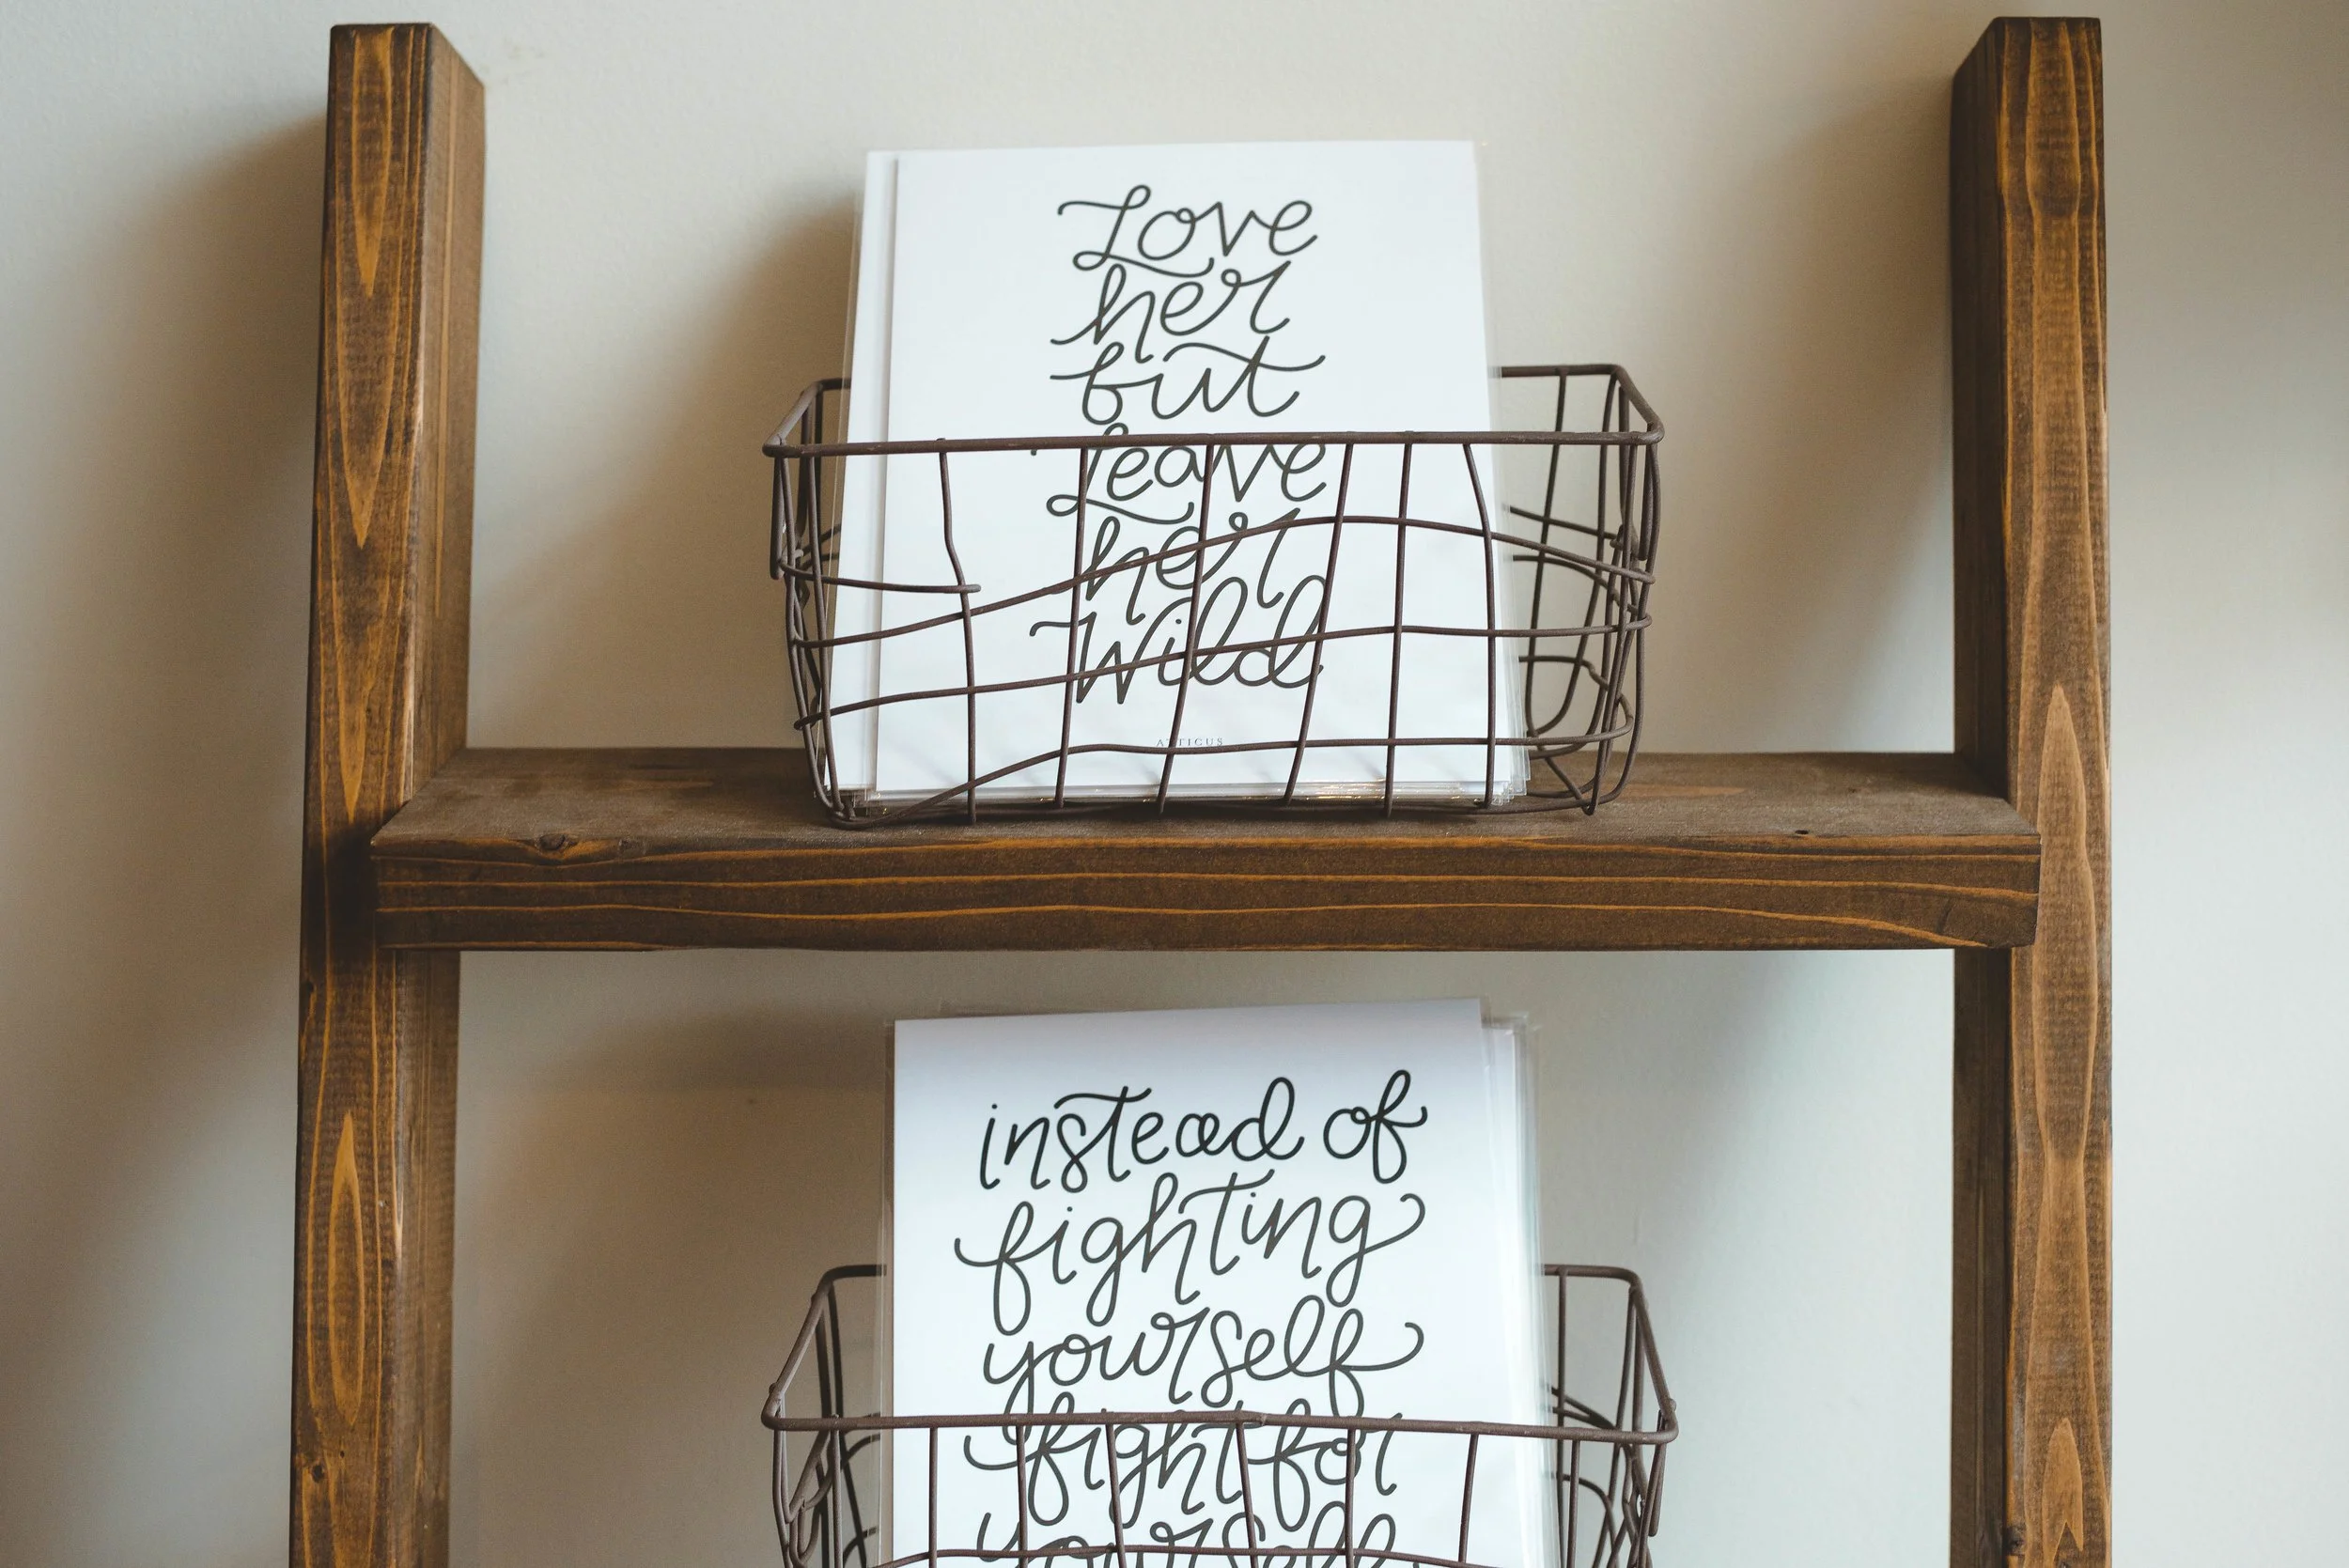 Love
her
but
Leave
her
Wild
ATTICUS
instead of
fighting
yourself
fight for
yourself